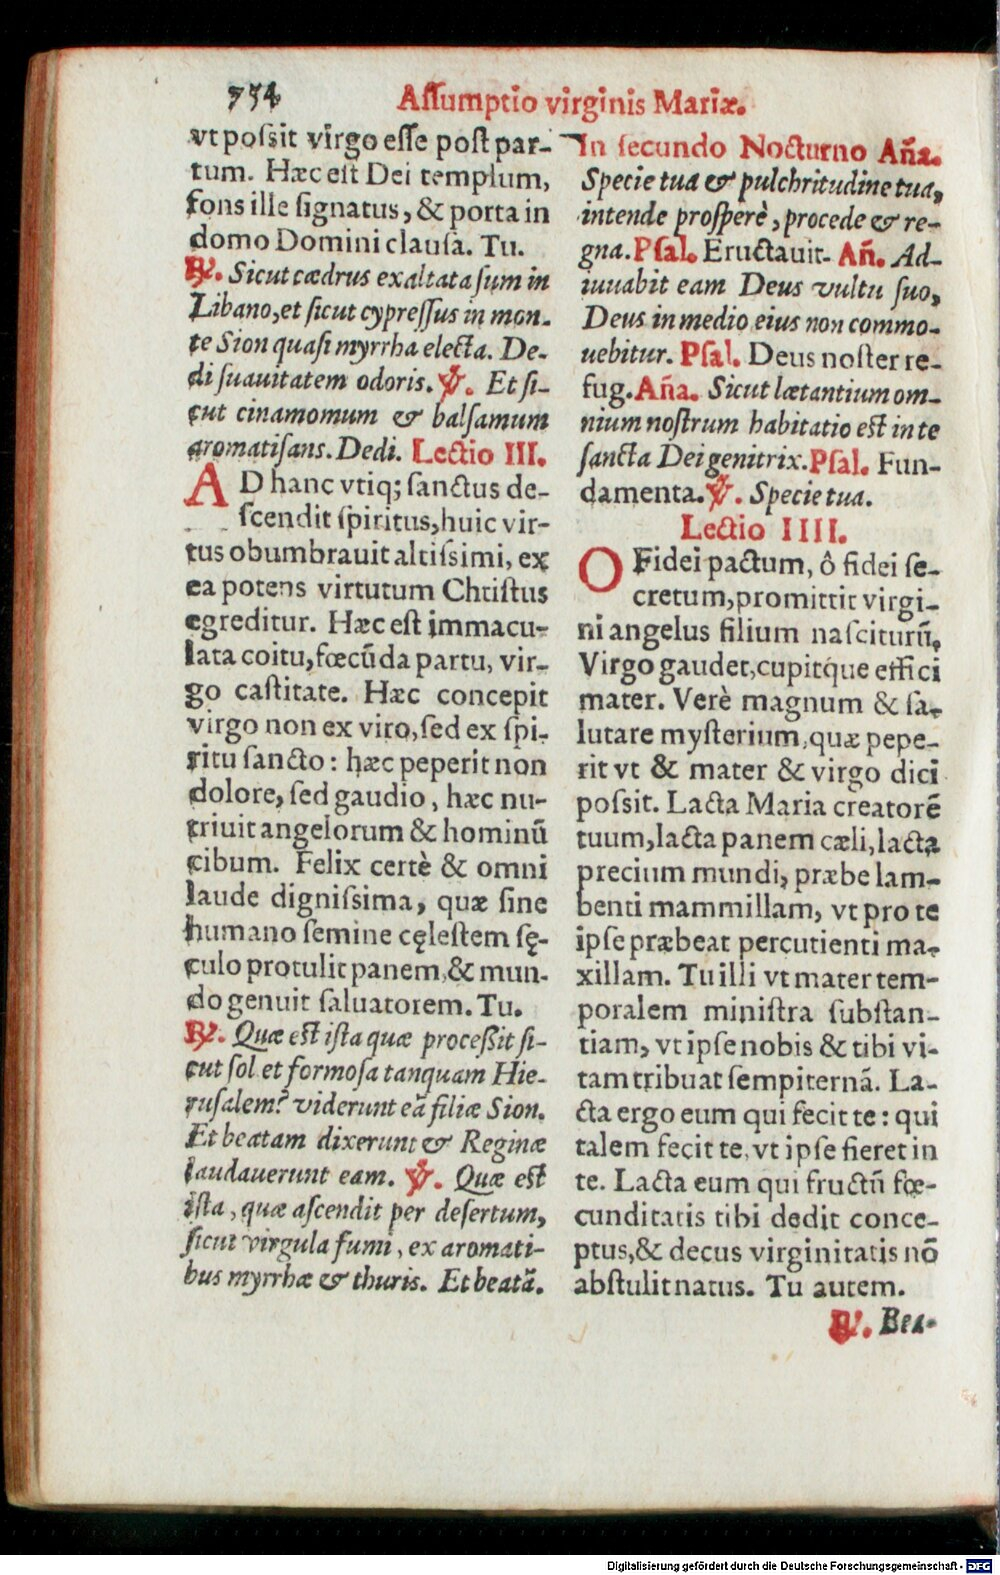 754
Aſſumptio virginis Mariæ.
vt poſsit virgo eſſe poſt par-
tum. Hæc eſt Dei templum,
fons ille ſignatus, & porta in
domo Domini clauſa. Tu.
℟. Sicut cædrus exaltata ſum in
Libano, et ſicut cypreſſus in mon-
te Sion quaſi myrrha electa. De-
di ſuauitatem odoris. ℣. Et ſi-
cut cinamomum & balſamum
aromatiſans. Dedi. Lectio III.
AD hanc vtiq; ſanctus de-
ſcendit ſpiritus, huic vir-
tus obumbrauit altiſsimi, ex
ea potens virtutum Chriſtus
egreditur. Hæc eſt immacu-
lata coitu, fœcūda partu, vir-
go caſtitate. Hæc concepit
virgo non ex viro, ſed ex ſpi-
ritu ſancto: hæc peperit non
dolore, ſed gaudio, hæc nu-
triuit angelorum & hominū
cibum. Felix certè & omni
laude digniſsima, quæ ſine
humano ſemine cęleſtem ſę-
culo protulit panem, & mun-
do genuit ſaluatorem. Tu.
℟. Quæ eſt iſta quæ proceſſit ſi-
cut ſol et formoſa tanquam Hie-
ruſalem? viderunt eā filiæ Sion.
Et beatam dixerunt & Reginæ
laudauerunt eam. ℣. Quæ eſt
iſta, quæ aſcendit per deſertum,
ſicut virgula fumi, ex aromati-
bus myrrhæ & thuris. Et beatā.
In ſecundo Nocturno Aña.
Specie tua & pulchritudine tua,
intende proſperè, procede & re-
gna. Pſal. Eructauit. Añ. Ad-
iuuabit eam Deus vultu ſuo,
Deus in medio eius non commo-
uebitur. Pſal. Deus noſter re-
fug. Aña. Sicut lætantium om-
nium noſtrum habitatio eſt in te
ſancta Dei genitrix. Pſal. Fun-
damenta. ℣. Specie tua.
Lectio IIII.
O Fidei pactum, ô fidei ſe-
cretum, promittit virgi-
ni angelus filium naſciturū.
Virgo gaudet, cupitq́ue effici
mater. Verè magnum & ſa-
lutare myſterium, quæ pepe-
rit vt & mater & virgo dici
poſsit. Lacta Maria creatorē
tuum, lacta panem cæli, lacta
precium mundi, præbe lam-
benti mammillam, vt pro te
ipſe præbeat percutienti ma-
xillam. Tu illi vt mater tem-
poralem miniſtra ſubſtan-
tiam, vt ipſe nobis & tibi vi-
tam tribuat ſempiternā. La-
cta ergo eum qui fecit te: qui
talem fecit te, vt ipſe fieret in
te. Lacta eum qui fructū fœ-
cunditatis tibi dedit conce-
ptus, & decus virginitatis nō
abſtulit natus. Tu autem.
℟. Bea-
Digitalisierung gefördert durch die Deutsche Forschungsgemeinschaft - DFG